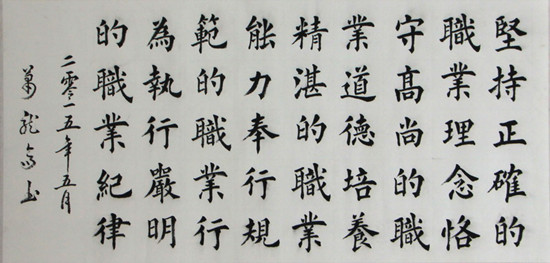 堅持正確的
職業理念恪
守高尚的職
業道德培養
精湛的職業
能力奉行規
範的職業行
為執行嚴明
的職業紀律
二零一五年五月
萬龍